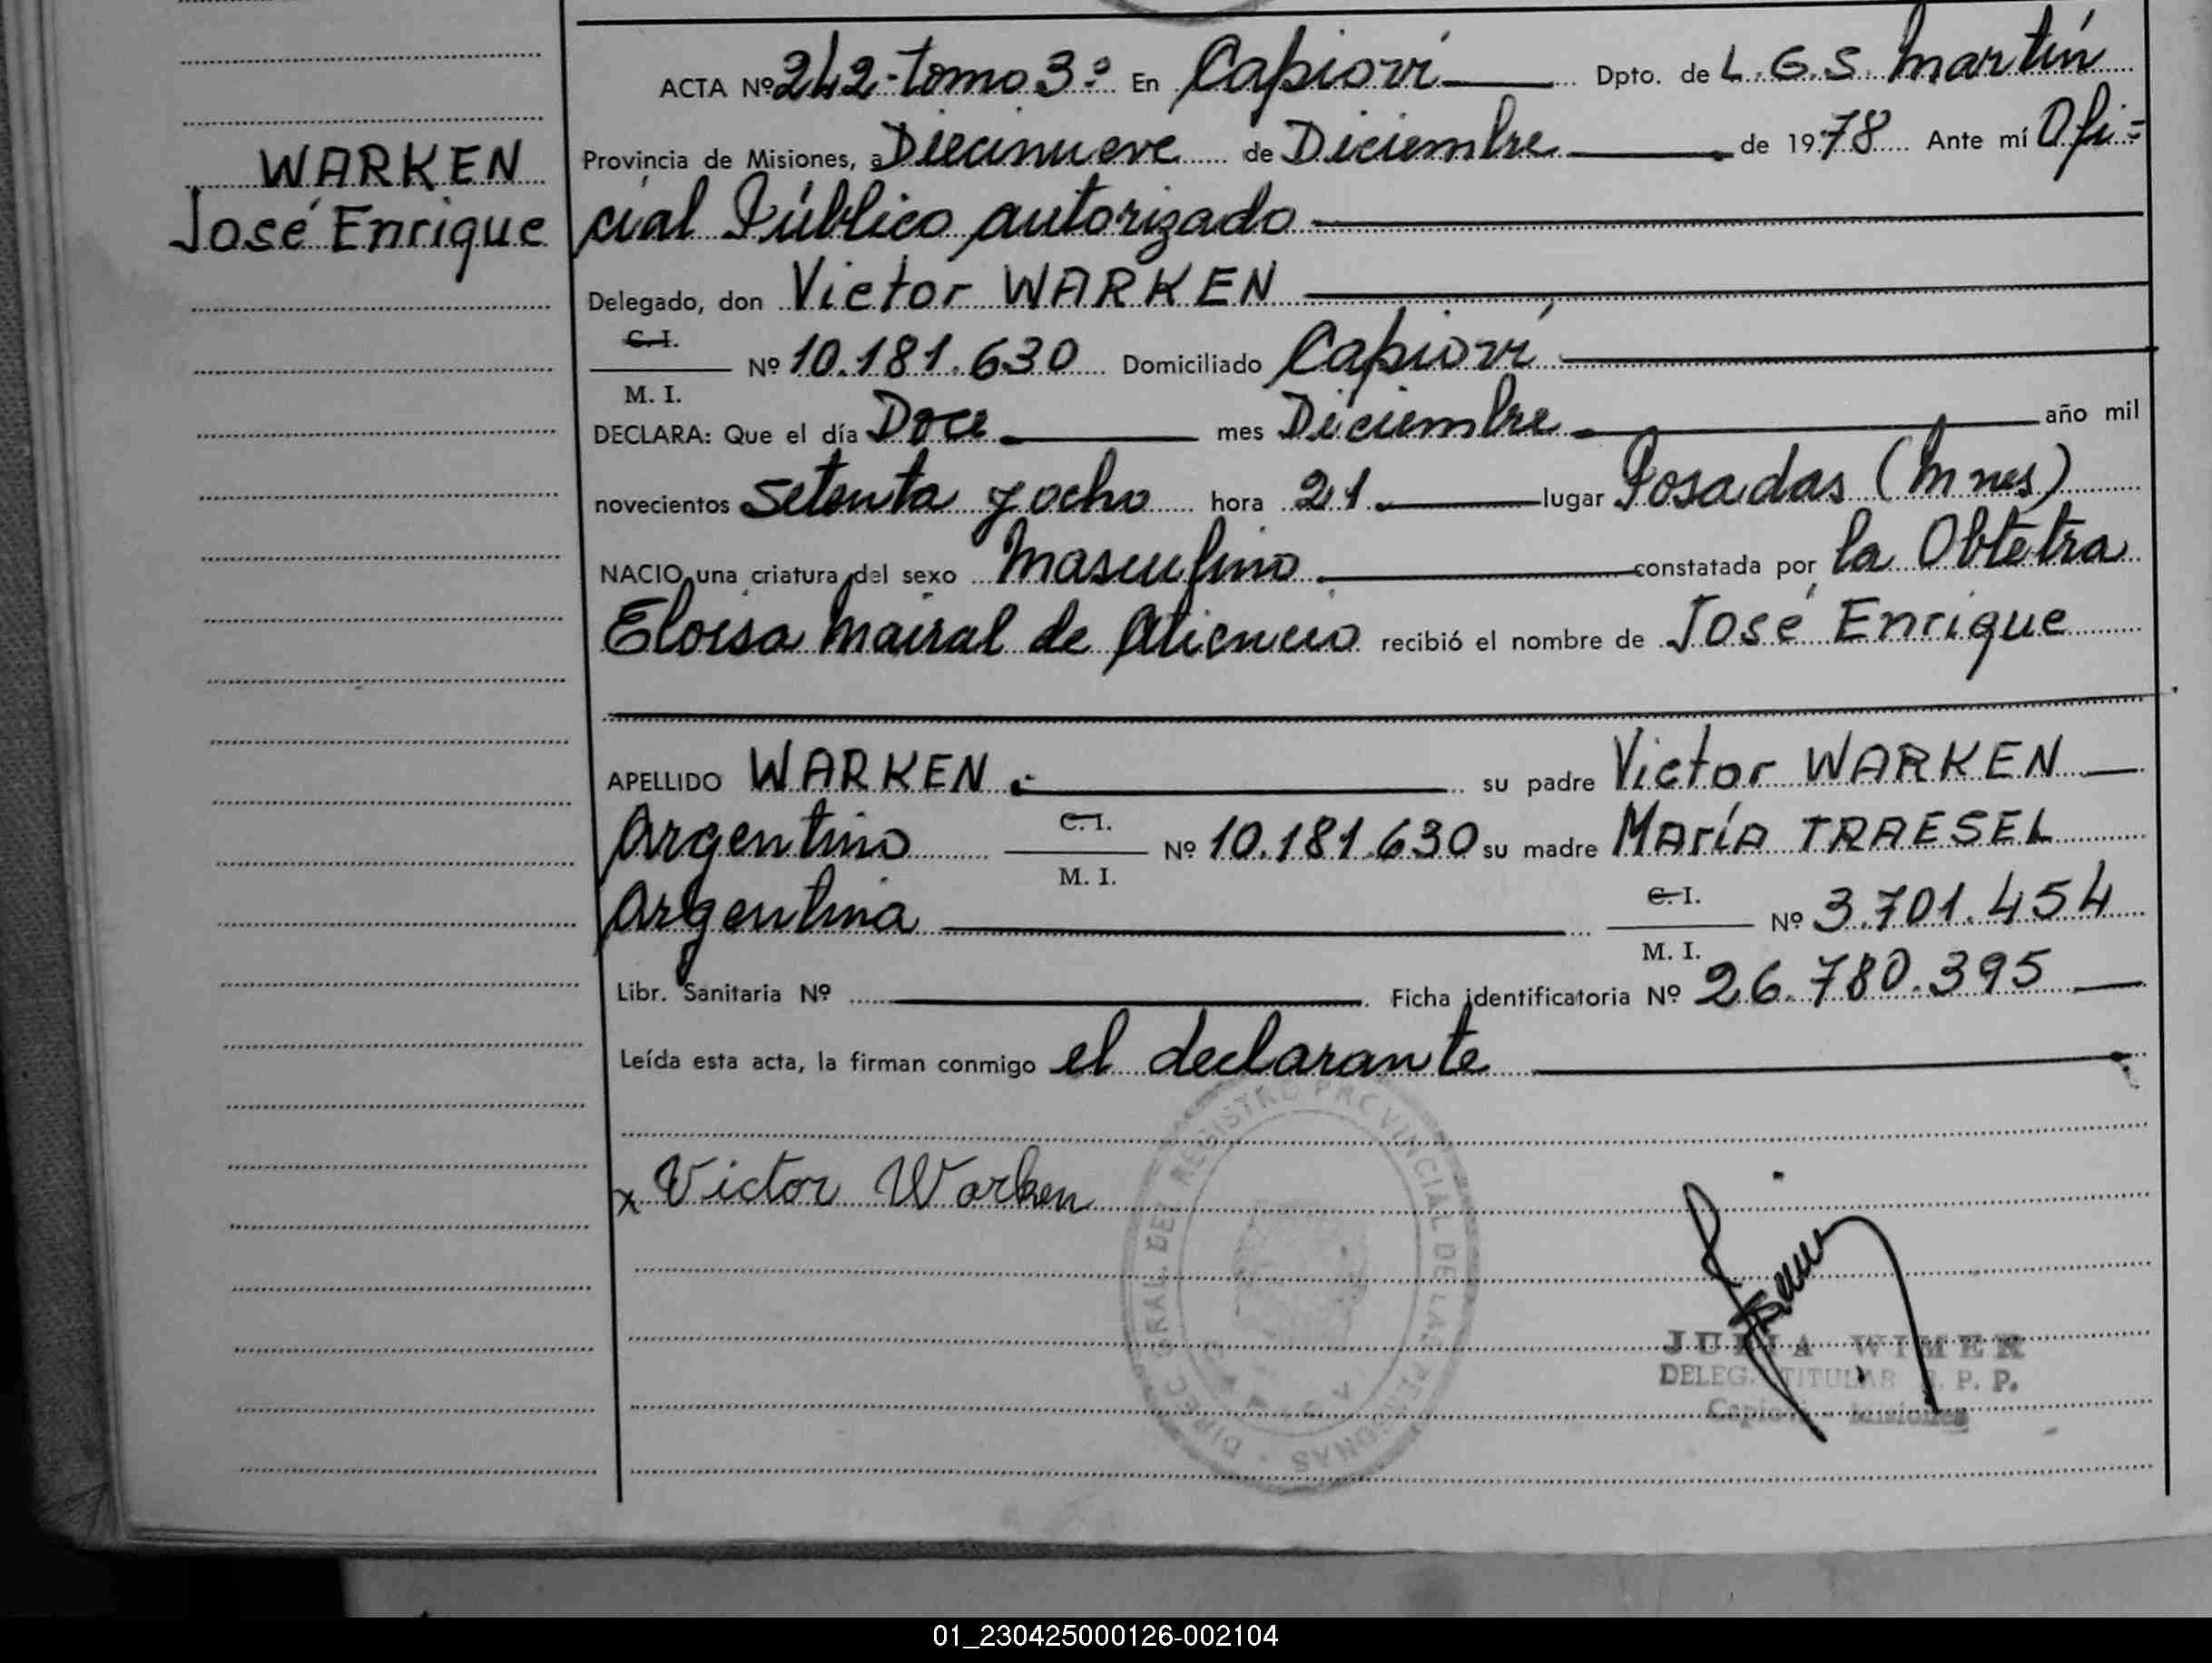 ACTA Nº 242-tomo 3º En Capioví Dpto. de L.G.S. Martín
WARKEN
Provincia de Misiones, a Diecinueve de Diciembre de 1978 Ante mí Ofi-
José Enrique
cial Público autorizado
Delegado, don Victor WARKEN
C.I. M. I. Nº 10.181.630 Domiciliado Capioví
DECLARA: Que el día Doce mes Diciembre año mil
novecientos setenta y ocho hora 21 lugar Posadas (Mnes)
NACIO una criatura del sexo Masculino constatada por la Obtetra
Eloisa Mairal de recibió el nombre de José Enrique
APELLIDO WARKEN su padre Victor WARKEN
Argentino C.I. M. I. Nº 10.181.630 su madre MARÍA TRAESEL
Argentina C.I. M. I. Nº 3.701.454
Libr. Sanitaria Nº Ficha identificatoria Nº 26.780.395
Leída esta acta, la firman conmigo el declarante
x Victor Warken
DIREC. GRAL. DEL REGISTRO PROVINCIAL DE LAS PERSONAS
JULIA WIMER
DELEG. TITULAR R. P. P.
Capioví - Misiones
01_230425000126-002104